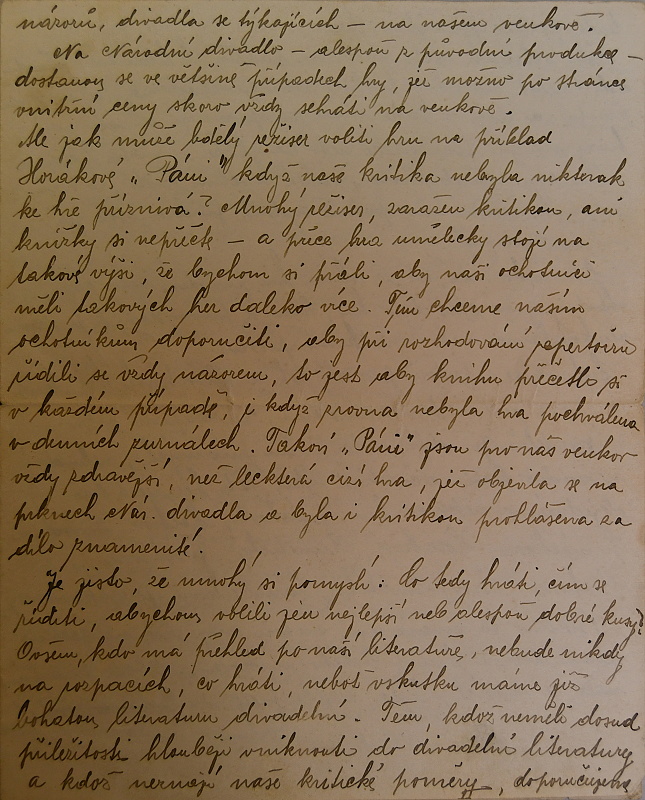 názorů, divadla se týkajících – na našem venkově.
Na Národní divadlo – alespoň z původní produkce –
dostanou se ve většině případech hry, jež možno po stránce
vnitřní ceny skoro vždy sehráti na venkově.
Ale jak může bdělý režiser voliti hru na příklad
Horákové „Páni" když naše kritika nebyla nikterak
ke hře příznivá? Mnohý režiser, zaražen kritikou, ani
knížky si nepřečte – a přece hra umělecky stojí na
takové výši, že bychom si přáli, aby naši ochotníci
měli takových her daleko více. Tím chceme našim
ochotníkům doporučiti, aby při rozhodování repertoiru
řídili se vždy názorem, to jest aby knihu přečetli si
v každém případě, i když zrovna nebyla hra pochválena
v denních žurnálech. Takoví „Páni" jsou pro náš venkov
vždy zdravější, než leckterá cizí hra, jež objevila se na
prknech Nár. divadla a byla i kritikou prohlášena za
dílo znamenité.
Je jisto, že mnohý si pomyslí: Co tedy hráti, čím se
říditi, abychom volili jen nejlepší neb alespoň dobré kusy?
Ovšem, kdo má přehled po naší literatuře, nebude nikdy
na rozpacích, co hráti, neboť vskutku máme již
bohatou literaturu divadelní. Těm, kdož neměli dosud
příležitosti hlouběji vniknouti do divadelní literatury
a kdož neznají naše kritické poměry, doporučujeme